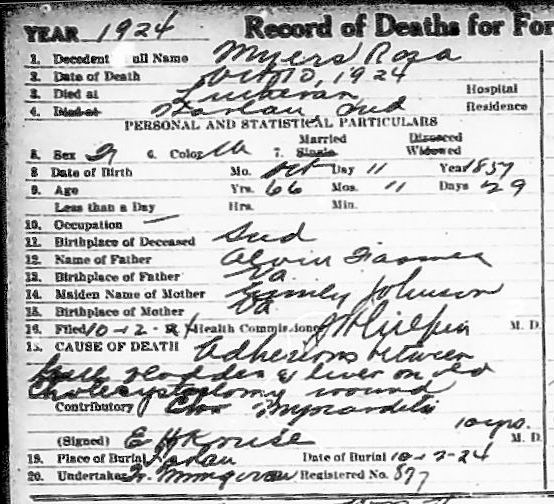 YEAR 1924 Record of Deaths for For
1. Decedent Full Name Myers Rosa
2. Date of Death Oct 10, 1924
3. Died at Lutheran Hospital
4. Died at Harlan Ind Residence
PERSONAL AND STATISTICAL PARTICULARS
Married Divorced
5. Sex 6. Color W 7. Single Widowed
8 Date of Birth Mo. Oct Day 11 Year 1857
9. Age Yrs. 66 Mos. 11 Days 29
Less than a Day Hrs. Min.
10. Occupation —
11. Birthplace of Deceased Ind
12. Name of Father Alvin Farmer
13. Birthplace of Father Va
14. Maiden Name of Mother Emily Johnson
15. Birthplace of Mother Va
16. Filed 10-2-24 Health Commissioner J H Gilpin M. D.
15. CAUSE OF DEATH Adhesions between
gall bladder & liver on old
Cholecystostomy wound
Contributory Chr Myocarditis
10 yrs.
(Signed) E H Kruse M. D.
19. Place of Burial Harlan Date of Burial 10-2-24
20. Undertaker Registered No. 877